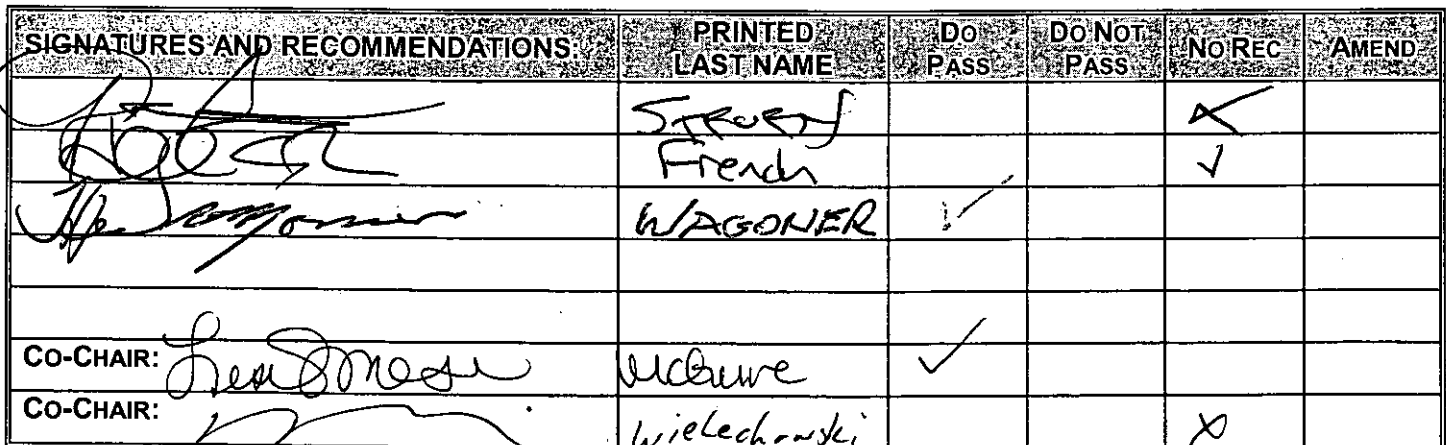 SIGNATURES AND RECOMMENDATIONS: PRINTED LAST NAME DO PASS DO NOT PASS NO REC AMEND
French ✓
WAGONER ✓
CO-CHAIR: McGuire ✓
CO-CHAIR: Wielechowski X